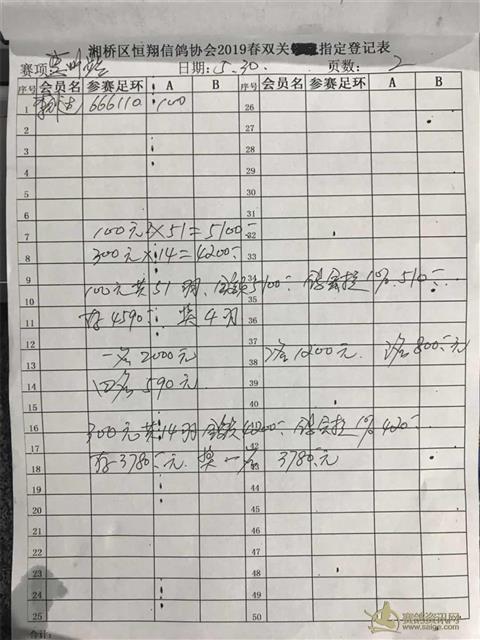 湘桥区恒翔信鸽协会2019春双关指定登记表
赛项 日期: 5.30. 页数: 2
序号 会员名 参赛足环 A B 序号 会员名 参赛足环 A B
1 666110 100 26
2 27
3 28
4
5
6
7 100元×51=5100 32
8 300元×14=4200 33
9 100元共51羽 金额5100 鸽会提10% 510 34
10
11 存4590 奖4羽 36
12 37
13 一名2000元 38 1200元 800元
14 四名590元 39
15 40
16
17 300元共14羽 金额4200 鸽会提10% 420 42
18 存3780元 奖一名 3780元 43
19 44
20 45
21 46
22 47
23 48
24 49
25 50
赛鸽资讯网
www.saige.com